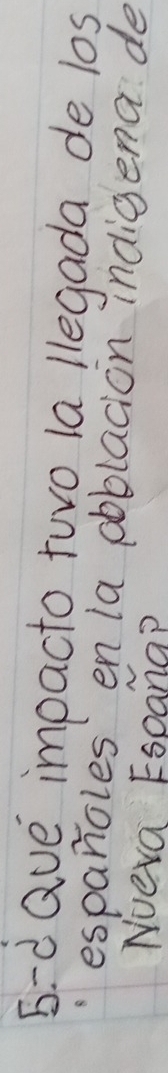 5.-¿Qué impacto tuvo la llegada de los
españoles en la población indigena de
Nueva España?